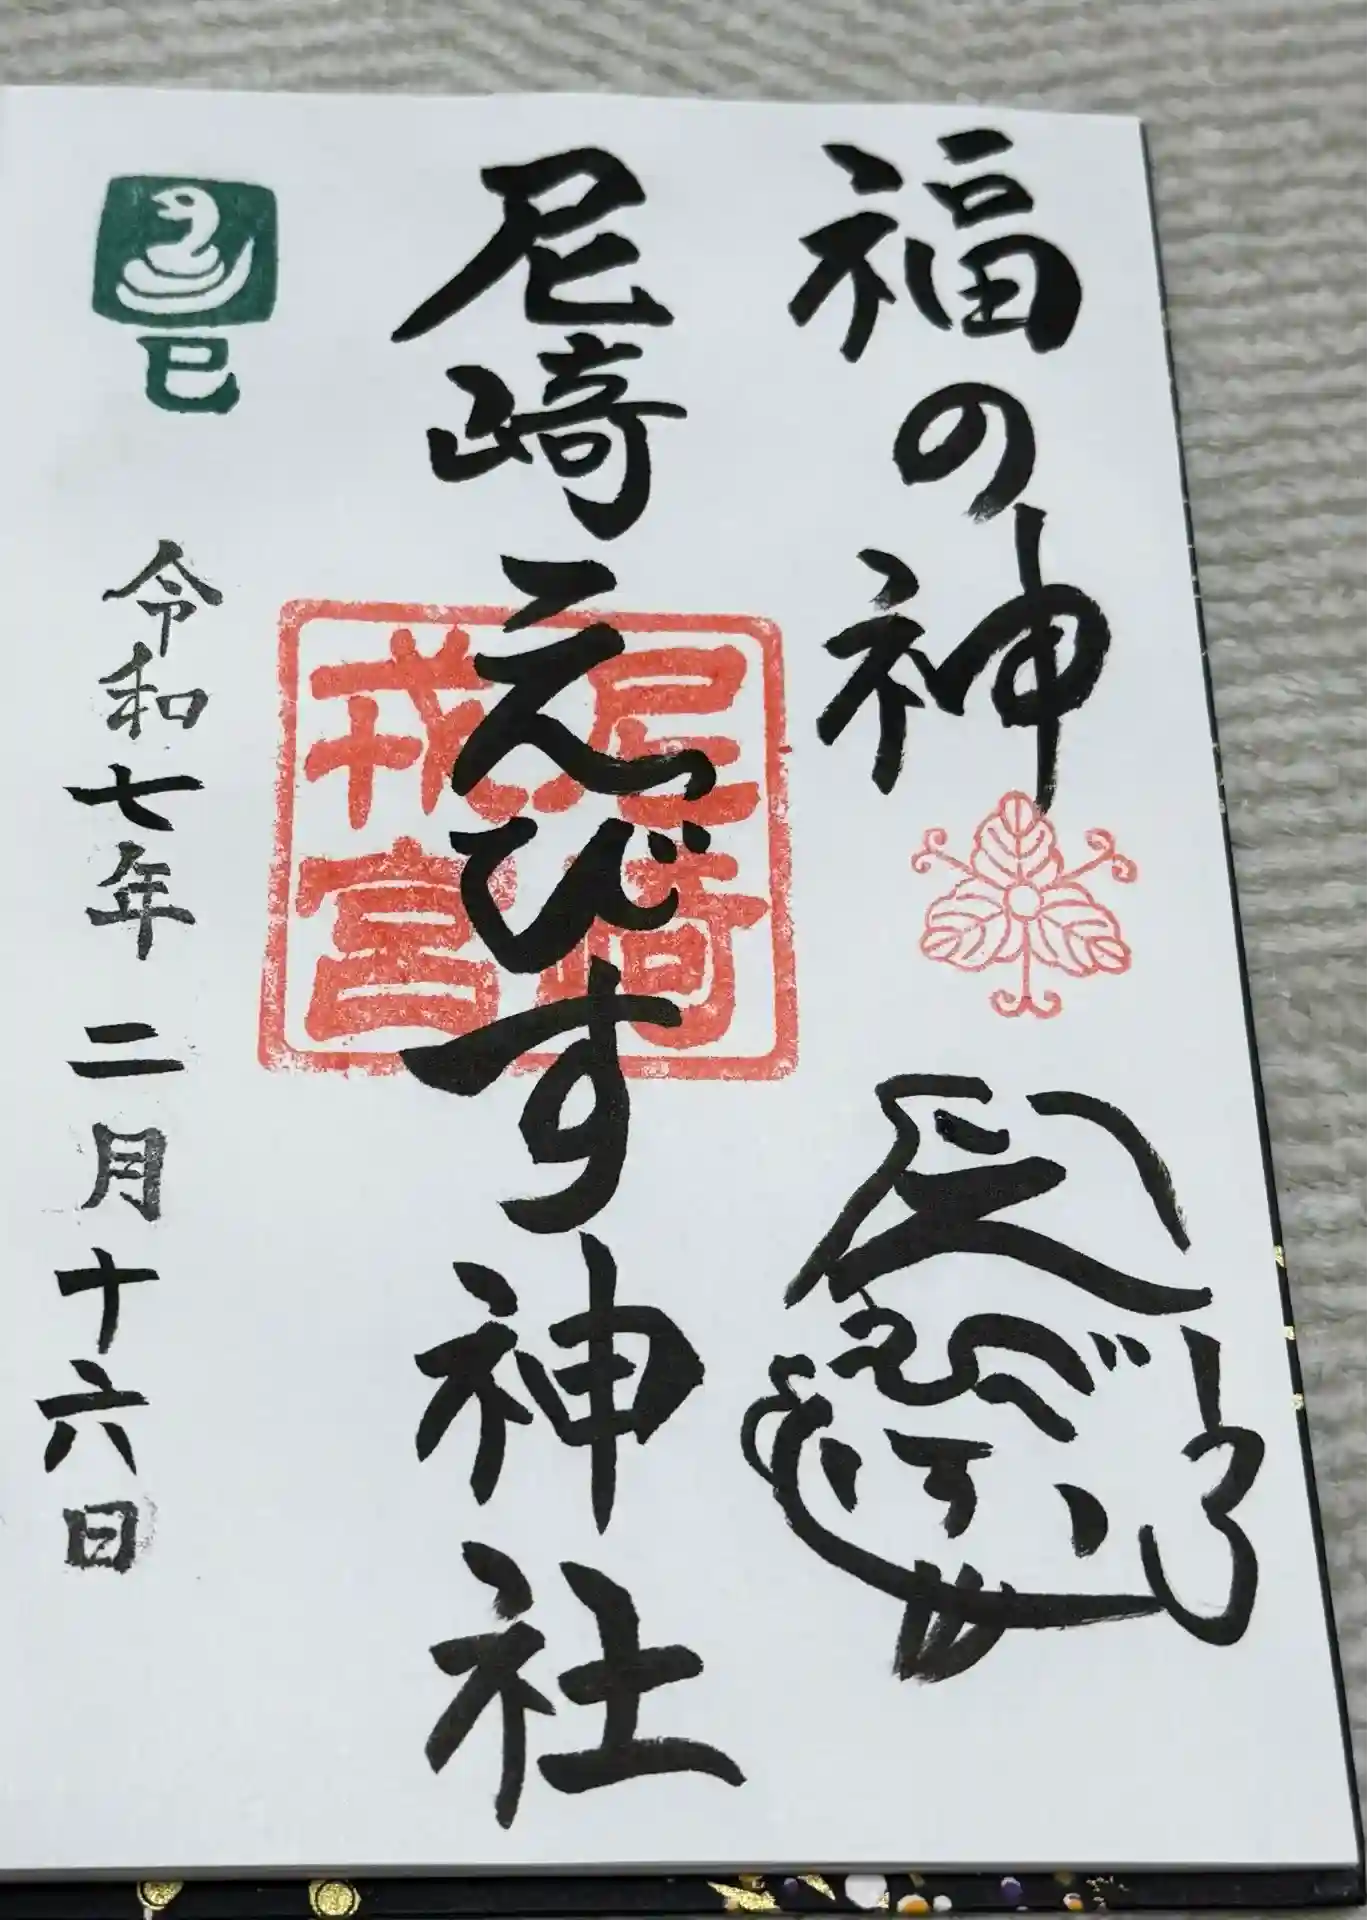 福の神
尼崎えびす神社
尼崎
戎宮
巳
令和七年二月十六日